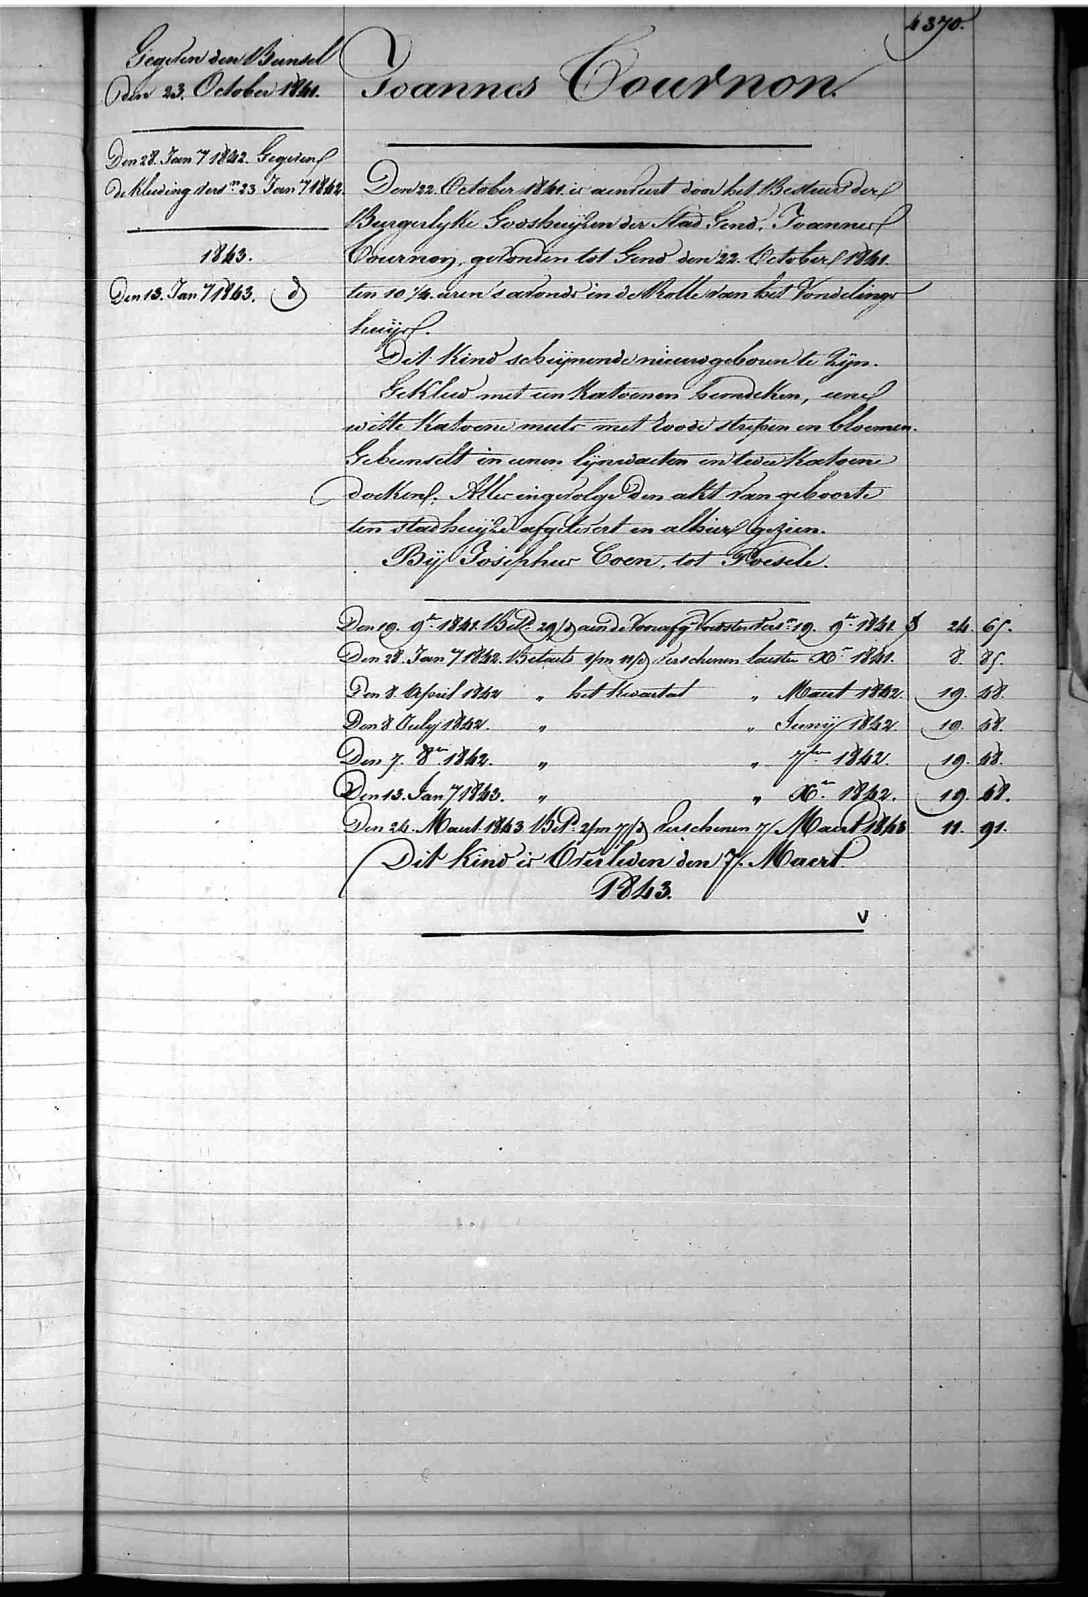 4370.
Gegeven den Bunsel
den 23. October 1841.
Den 28. Jan 7 1842. Gegeven
de kleeding vers.n 23 Jan 7 1842.
1843.
Den 13. Jan 7 1843. d
Joannes Cournon.
Den 22. October 1841. is aenveirt door het Bestuur der
Burgerlyke Godshuijzen der Stad Gend, Joannes
Cournon, gevonden tot Gend den 22. October 1841.
ten 10 1/4 uren 's avonds in de Rolle van het Vondelings
huijs.
Dit kind schijnende nieuwgeboren te zijn.
Gekleed met een katoenen hemdeken, eene
witte katoene muts met roode strepen en bloemen.
Gebunselt in eenen lijnwaeten en twee katoene
doeken. Alles ingevolge den akt van geboorte
ten stadhuijze afgelevert en alhier gezien.
Bij Josephus Coen, tot Poesele.
Den 19. 9.re 1841. Bet.d 29/d aen de Voorafg. Voedster vers.n 19. 9.re 1841. f 24. 65.
Den 28. Jan 7 1842. Betaelt 1/m 11/d verschenen laesten X.re 1841. 8. 85.
Den 8. April 1842 " het kwartael " Maert 1842. 19. 48.
Den 8 July 1842. " " Junij 1842 19. 48.
Den 7. 8.re 1842. " " 7.bre 1842. 19. 48.
Den 13. Jan 7 1843. " " X.re 1842. 19. 48.
Den 24. Maert 1843 Bet.d 2/m 7/d verschenen 7 Maert 1843 11. 91.
Dit kind is Overleden den 7. Maert
1843.
V